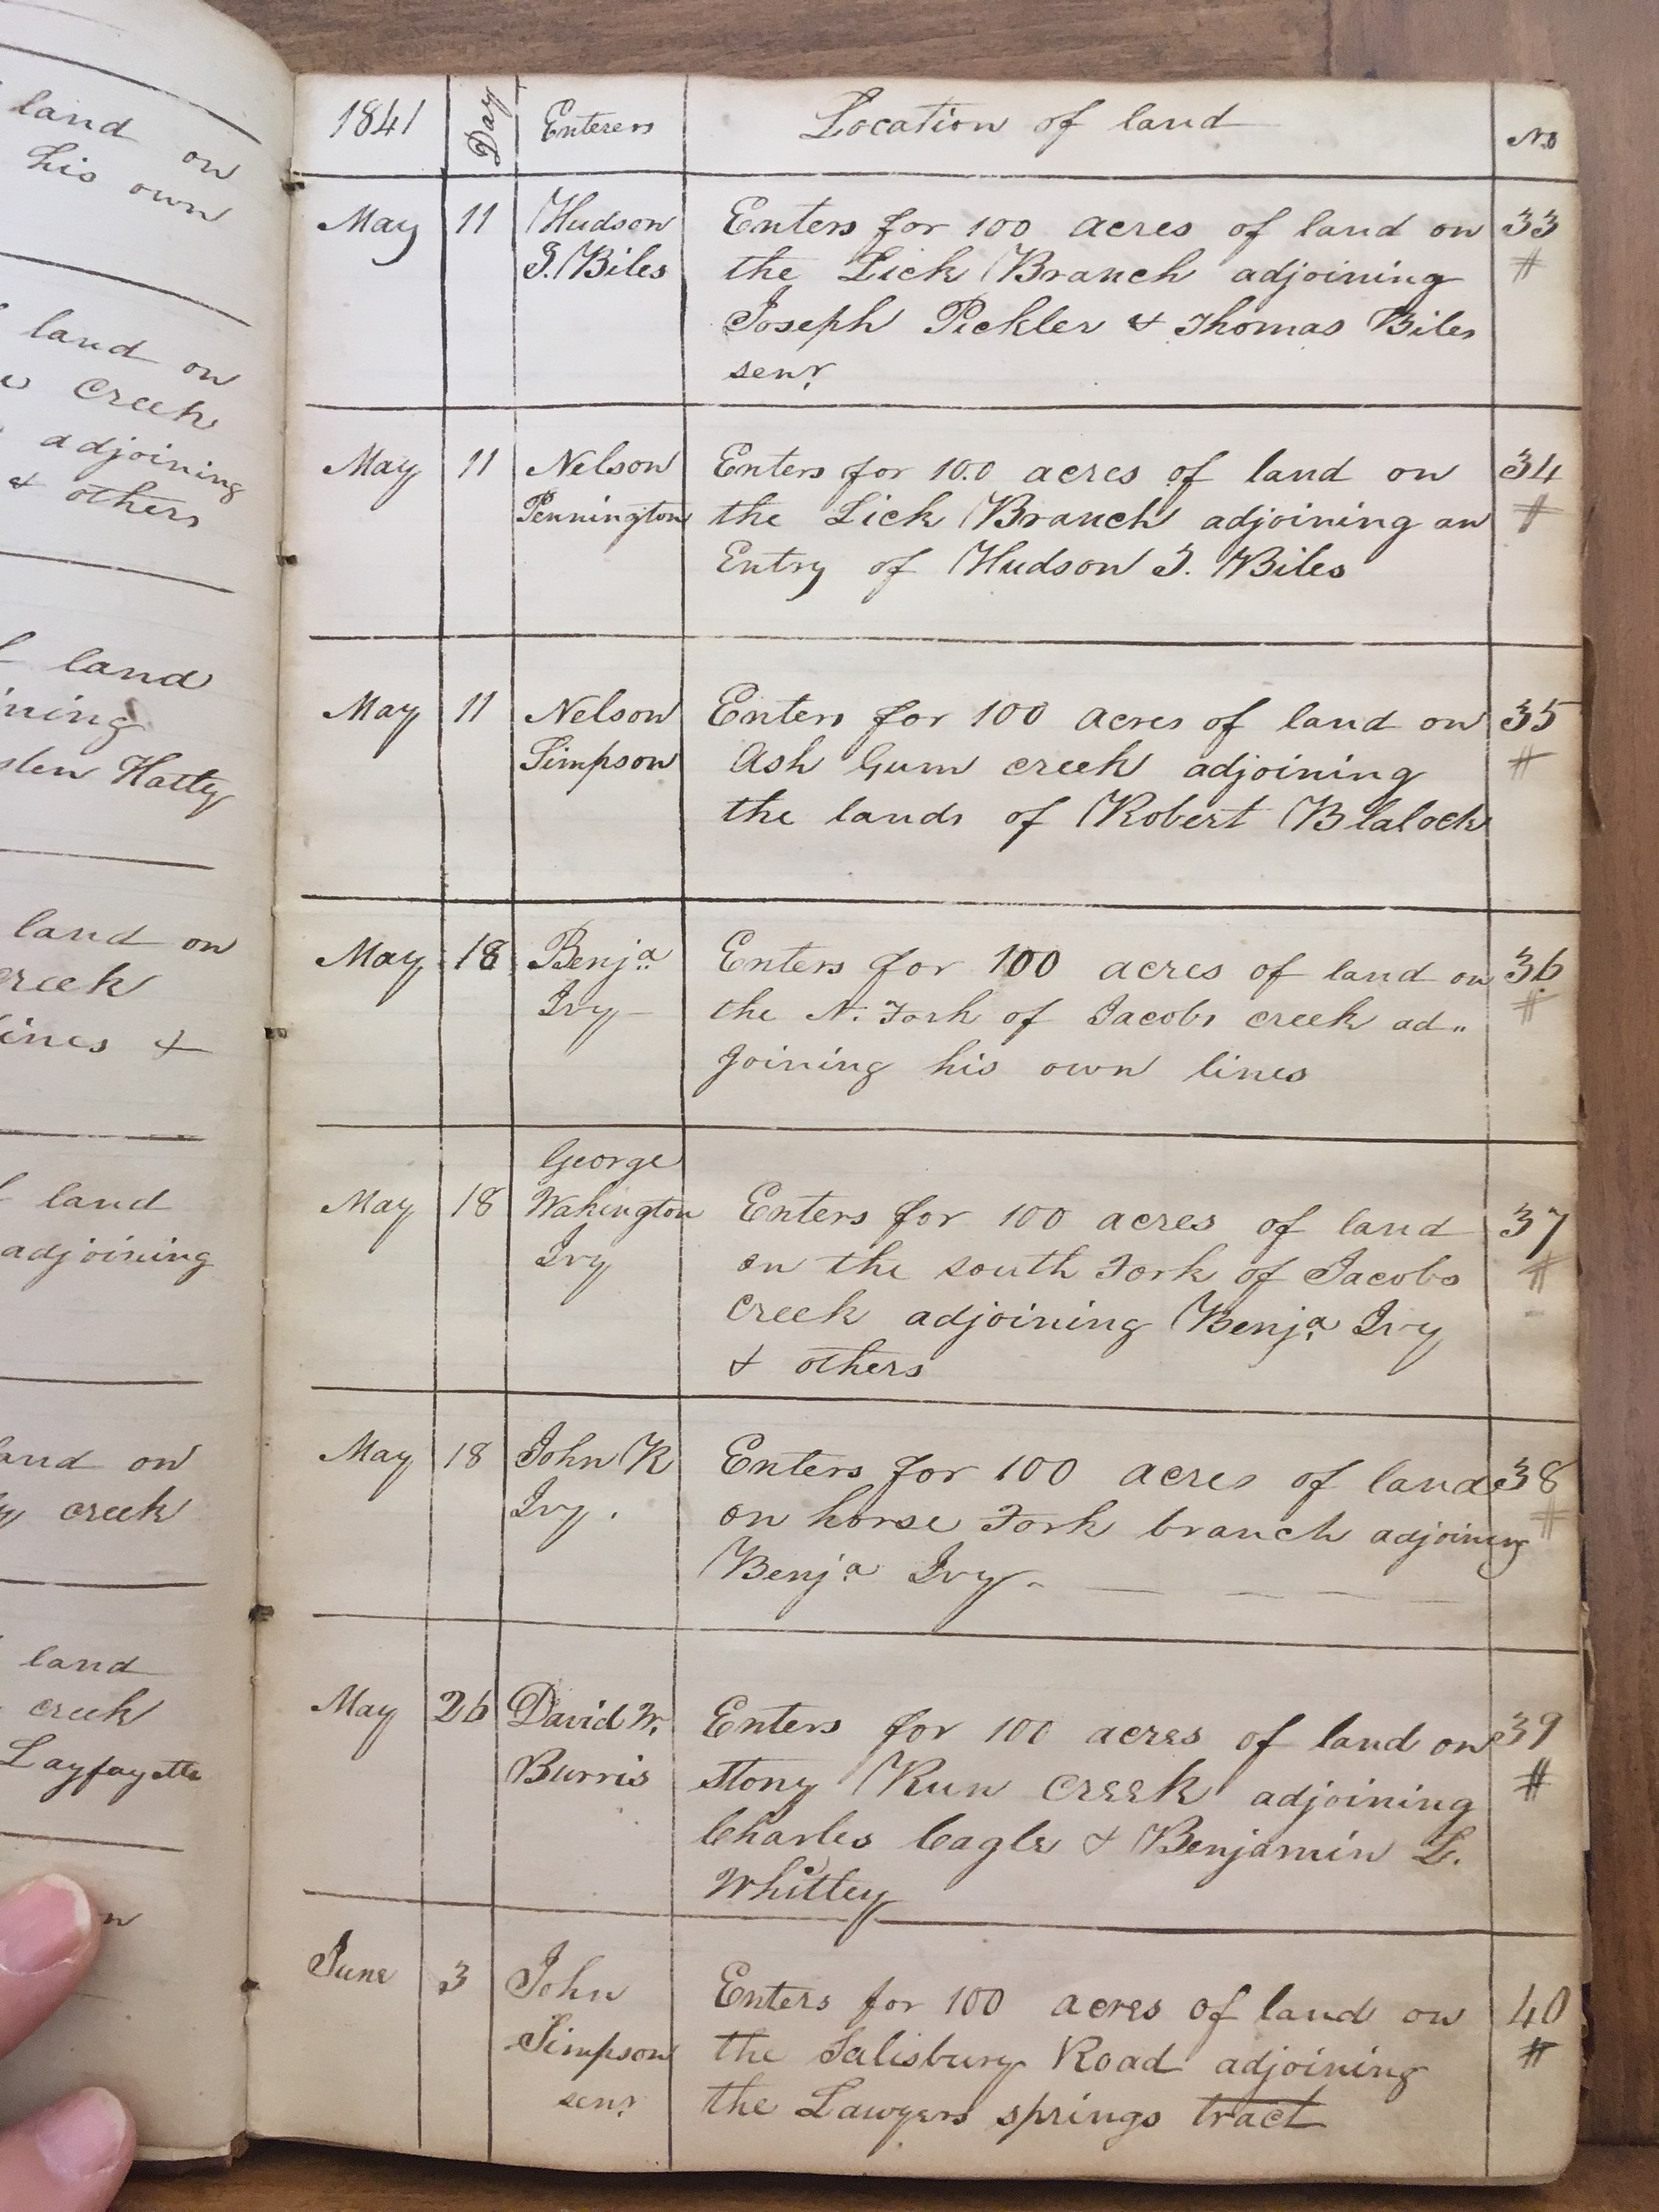 land on
his own
land on
creek
adjoining
& others
land
ining
Hatly
land on
creek
lines &
land
adjoining
and on
creek
land
creek
Layfayette
1841 Day Enterers Location of land No
May 11 Hudson Enters for 100 acres of land on 33
J. Biles the Lick Branch adjoining #
Joseph Pickler & Thomas Biles
senr
May 11 Nelson Enters for 100 acres of land on 34
Pennington the Lick Branch adjoining an #
Entry of Hudson J. Biles
May 11 Nelson Enters for 100 acres of land on 35
Simpson Ash Gum creek adjoining #
the lands of Robert Blalock
May 18 Benja Enters for 100 acres of land on 36
Ivy the N. Fork of Jacobs creek ad„ #
joining his own lines
George
May 18 Wahington Enters for 100 acres of land 37
Ivy on the south Fork of Jacobs #
creek adjoining Benja Ivy
& others
May 18 John K Enters for 100 acres of land 38
Ivy. on horse Fork branch adjoining #
Benja Ivy
May 26 David W. Enters for 100 acres of land on 39
Burris Stony Run creek adjoining #
Charles Cagle & Benjamin L.
Whitley
June 3 John Enters for 100 acres of land on 40
Simpson the Salisbury Road adjoining #
senr the Lawyers springs tract